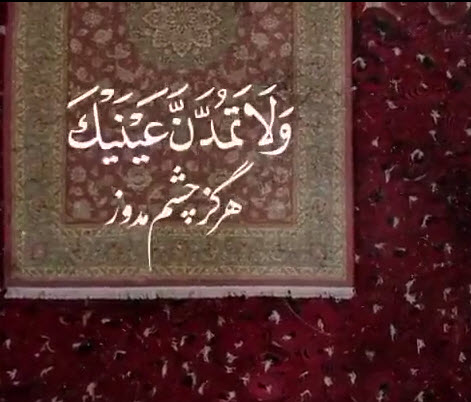 وَلَا تَمُدَّنَّ عَيْنَيْكَ
هرگز چشم مدوز